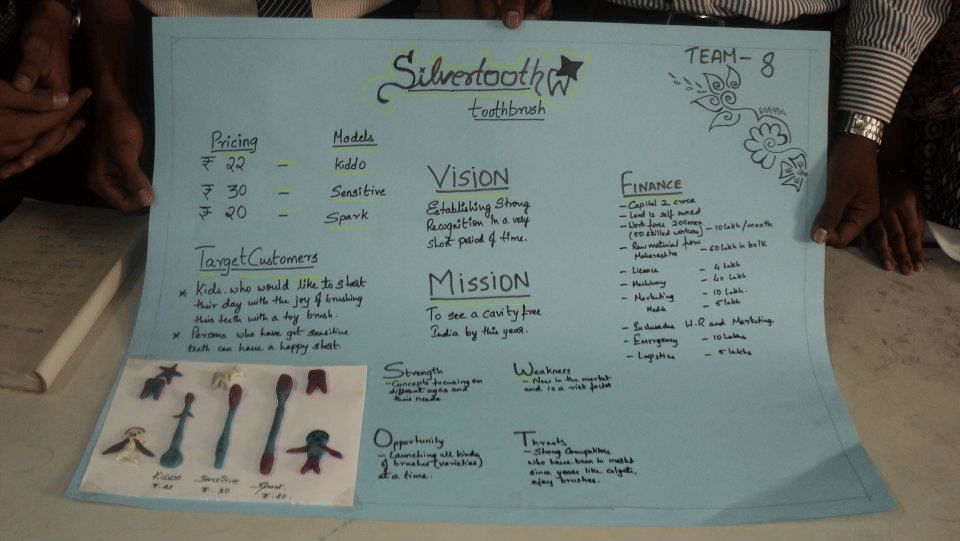 Silvertooth
toothbrush
TEAM - 8
Pricing Models
₹ 22 - Kiddo
₹ 30 - Sensitive
₹ 20 - Spark
Target Customers
* Kids. who would like to start
their day with the joy of brushing
their teeth with a toy brush.
* Persons who have got sensitive
teeth can have a happy start.
VISION
Establishing Strong
Recognition in a very
short period of time.
MISSION
To see a cavity free
India by this year.
FINANCE
- Capital 2 crore
- Land is self owned
- Work force 200 men
(50 skilled workers) - 10 lakh/month
- Raw material from
Maharashtra - 60 lakh in bulk
- Licence - 4 lakh
- Machinery - 40 lakh
- Marketing - 10 lakh.
Media - 5 lakh
- Includes H.R and Marketing.
- Emergency - 10 lakhs
- Logistics - 5 lakhs
Strength
- Concepts focusing on
different ages and
their needs
Weakness
- New in the market
and is a risk factor
Opportunity
- Launching all kinds
of brushes (varieties)
at a time.
Threats
- Strong Competitors
who have been in market
since years like colgate,
ajay brushes.
Kiddo Sensitive Spark
₹. 22 ₹. 30 ₹. 20.